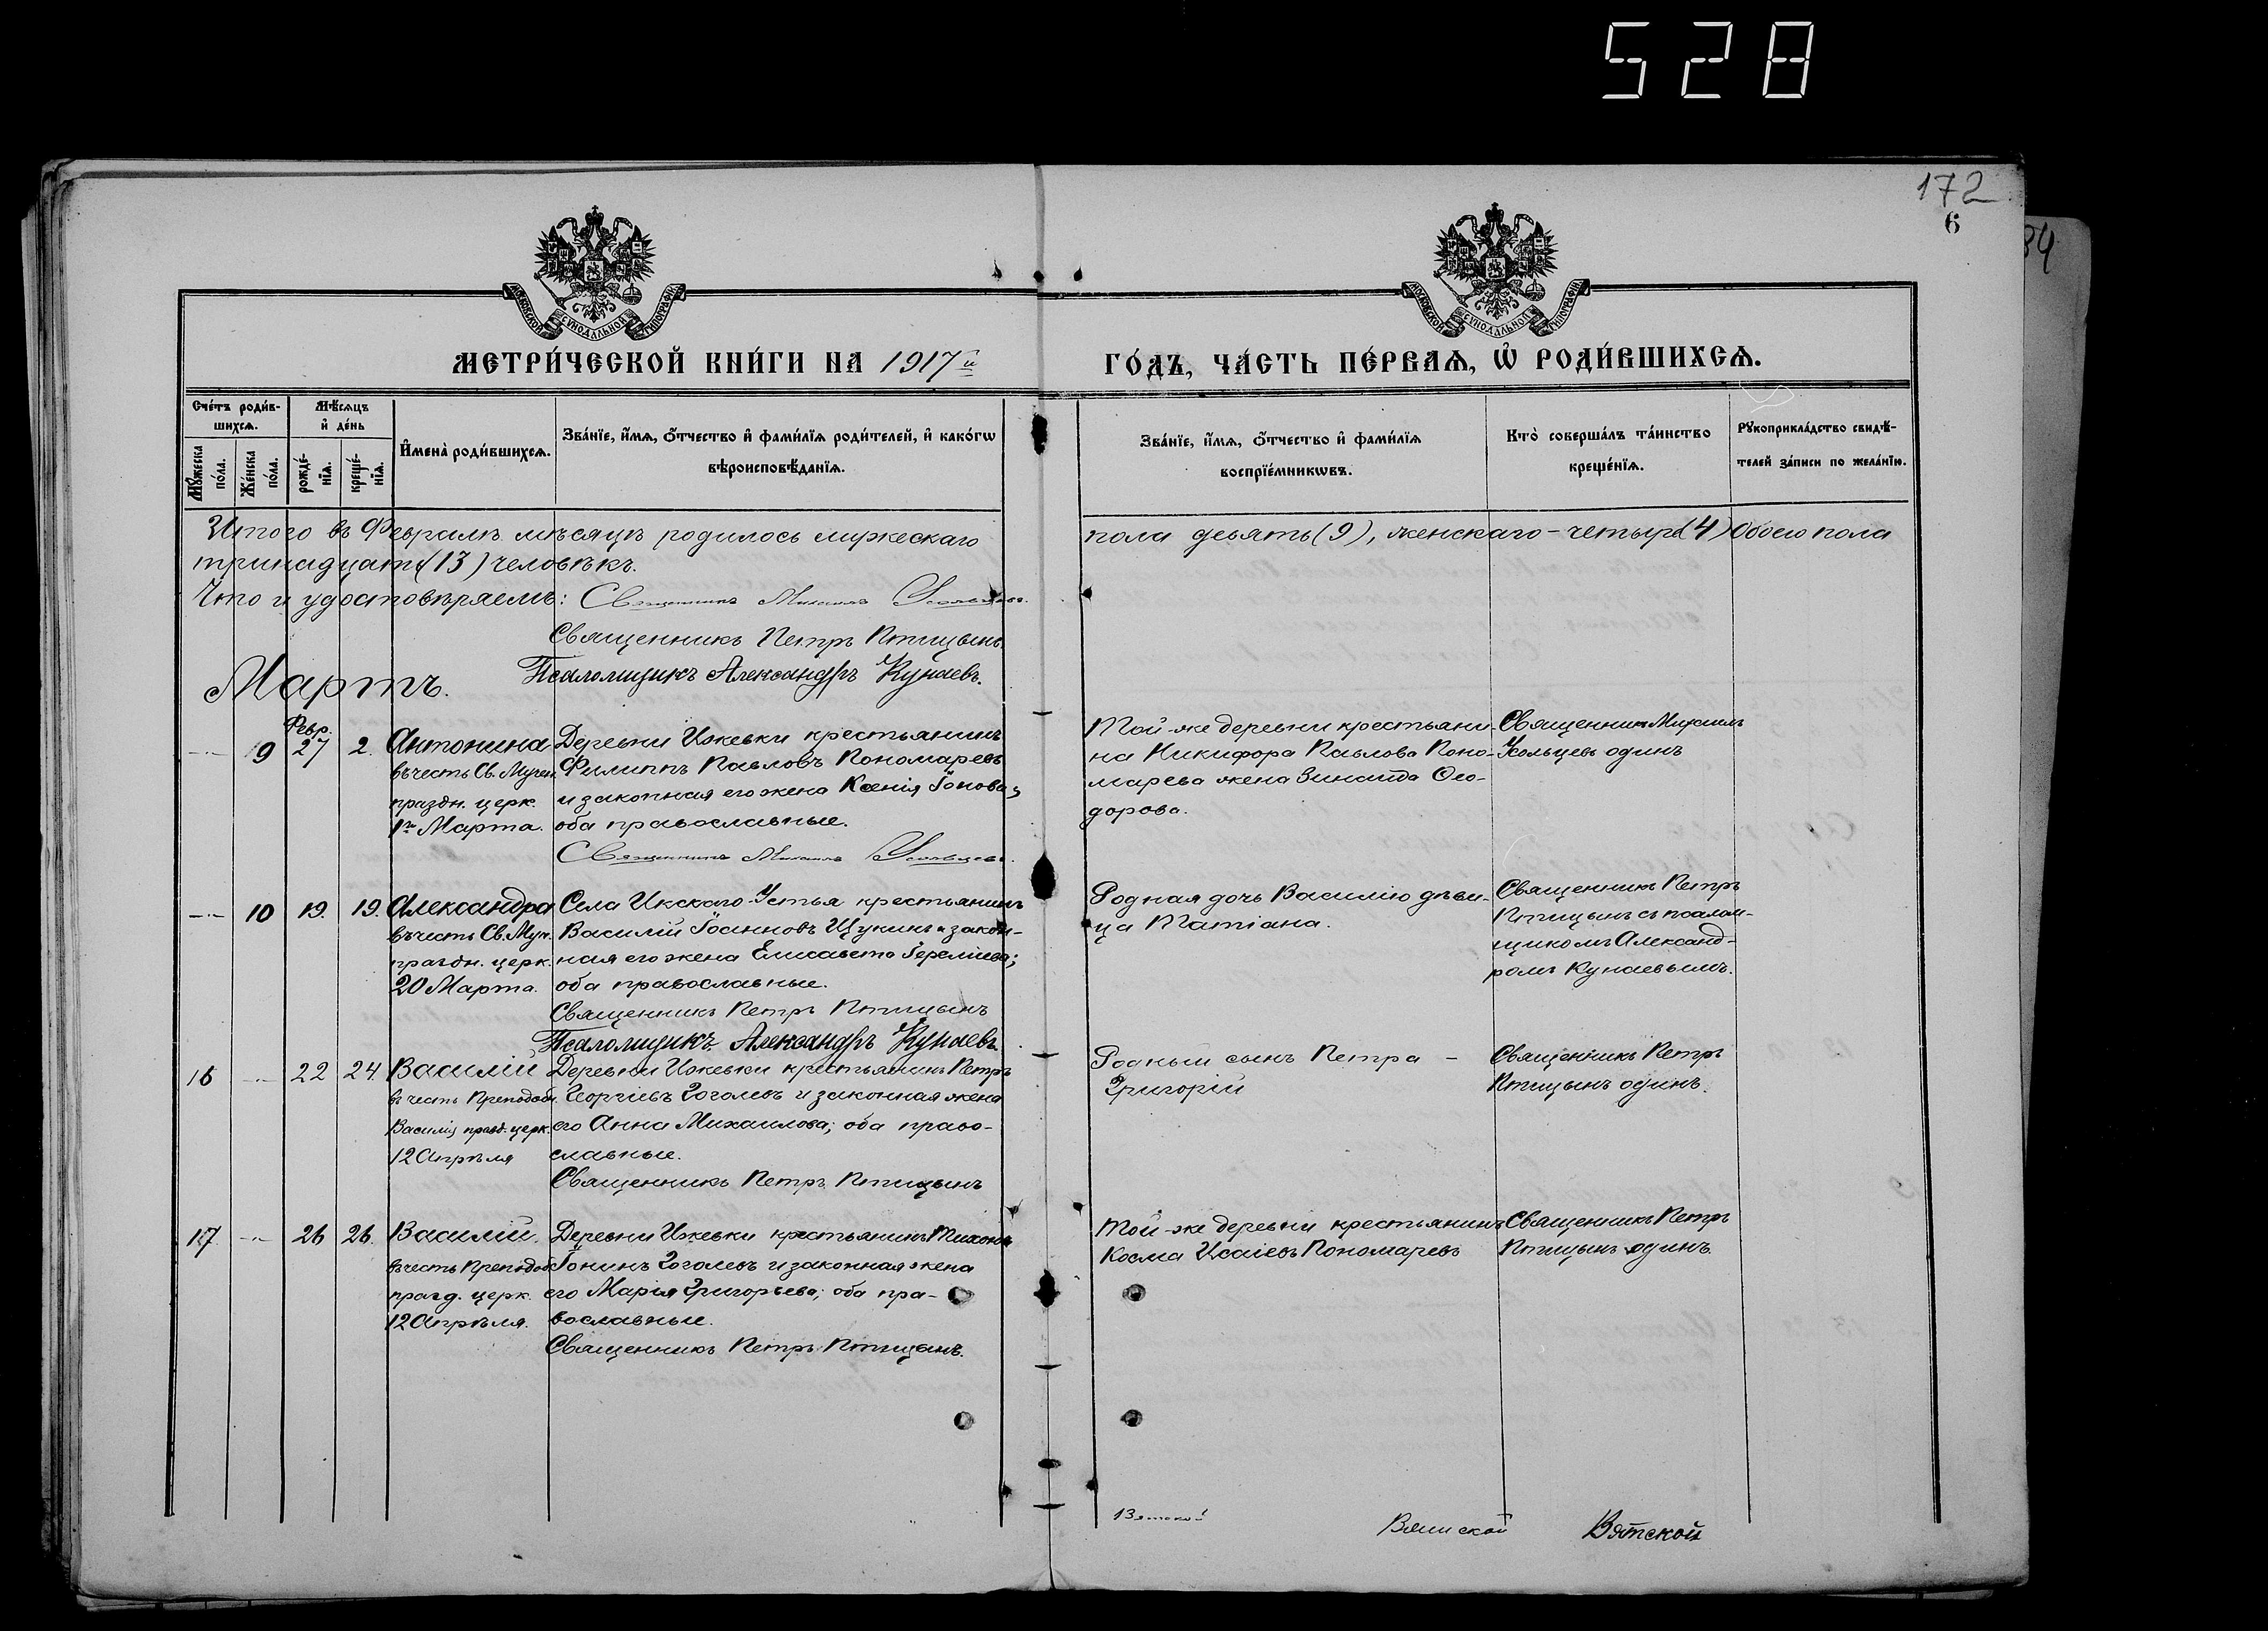 528
172
6
34
МОСКОВСКОЙ СѴНОДАЛЬНОЙ ТИПОГРАФІИ
МОСКОВСКОЙ СѴНОДАЛЬНОЙ ТИПОГРАФІИ
МЕТРИ́ЧЕСКОЙ КНИ́ГИ НА 1917й
ГО́ДЪ, ЧА́СТЬ ПЕ́РВАѦ, Ѡ҆ РОДИ́ВШИХСѦ.
Сче́тъ роди́в-
шихсѧ.
Мѣ́сѧцъ
и҆ де́нь
Мꙋ́жеска по́ла.
Же́нска по́ла.
рожде́-
нїѧ.
креще́-
нїѧ.
И҆мена̀ роди́вшихсѧ.
Зва́нїе, и҆́мѧ, ѻ҆́тчество и҆ фами́лїѧ роди́телей, и҆ како́гѡ
вѣроисповѣ́данїѧ.
Зва́нїе, и҆́мѧ, ѻ҆́тчество и҆ фами́лїѧ
воспрїе́мникѡвъ.
Кто̀ соверша́лъ та́инство
креще́нїѧ.
Рꙋкоприкла́дство свидѣ́-
телей за́писи по жела́нїю.
Итого въ Февралѣ мѣсяцѣ родилось мужескаго
пола девять (9), женскаго - четыре (4) Обоего пола
тринадцать (13) человѣкъ.
Что и удостовѣряемъ: Священникъ Михаилъ Усольцевъ.
Священникъ Петръ Птицынъ.
Псаломщикъ Александръ Кунаевъ.
Мартъ.
Февр.
9 27 2
Антонина
въ честь Св. Мучен.
праздн. церк.
1го Марта.
Деревни Ижевки крестьянинъ
Филиппъ Павловъ Пономаревъ
и законная его жена Ксенія Іонова;
оба православные.
Священникъ Михаилъ Усольцевъ.
Той-же деревни крестьяни-
на Никифора Павлова Поно-
марева жена Зинаида Ѳео-
дорова.
Священникъ Михаилъ
Усольцевъ одинъ
10 19. 19.
Александра
въ честь Св. Муч.
праздн. церк.
20 Марта.
Села Икскаго-Устья крестьянинъ
Василій Іоанновъ Щукинъ и закон-
ная его жена Елисавета Іереміева;
оба православные.
Священникъ Петръ Птицынъ
Псаломщикъ Александръ Кунаевъ.
Родная дочь Василію дѣви-
ца Татіана.
Священникъ Петръ
Птицынъ съ псалом-
щикомъ Александ-
ромъ Кунаевымъ.
16 22 24.
Василій
въ честь Преподоб.
Василія празд. церк.
12 Апрѣля
Деревни Ижевки крестьянинъ Петръ
Георгіевъ Гоголевъ и законная жена
его Анна Михаилова; оба право-
славные.
Священникъ Петръ Птицынъ
Родный сынъ Петра -
Григорій
Священникъ Петръ
Птицынъ одинъ.
17 26 26.
Василій.
въ честь Преподоб.
празд. церк.
12 Апрѣля.
Деревни Ижевки крестьянинъ Тихонъ
Іонинъ Гоголевъ и законная жена
его Марія Григорьева; оба пра-
вославные.
Священникъ Петръ Птицынъ.
Той-же деревни крестьянинъ
Косма Исаіевъ Пономаревъ
Священникъ Петръ
Птицынъ одинъ.
Вятской Вятской Вятской